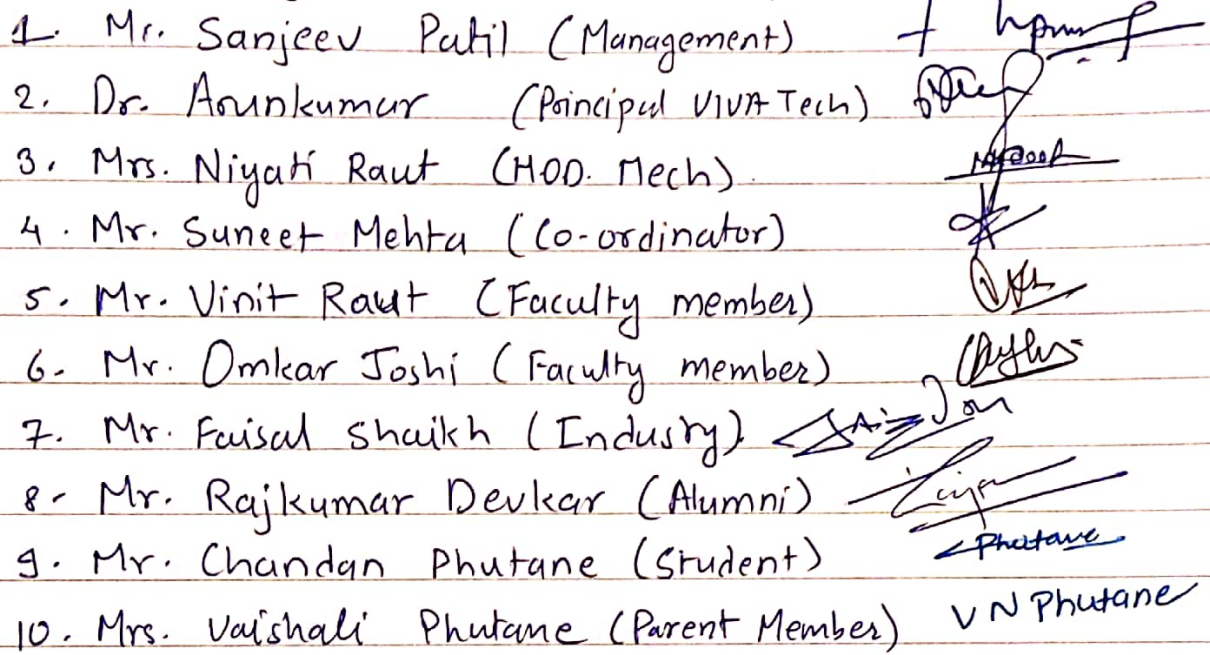 1. Mr. Sanjeev Patil (Management)
2. Dr. Arunkumar (Principal VIVA Tech)
3. Mrs. Niyati Raut (HOD. Mech).
4. Mr. Suneet Mehta (Co-ordinator)
5. Mr. Vinit Raut (Faculty member)
6. Mr. Omkar Joshi (Faculty member)
7. Mr. Faisal Shaikh (Indusry)
8. Mr. Rajkumar Devkar (Alumni)
9. Mr. Chandan Phutane (Student) Phutane
10. Mrs. Vaishali Phutane (Parent Member) V N Phutane